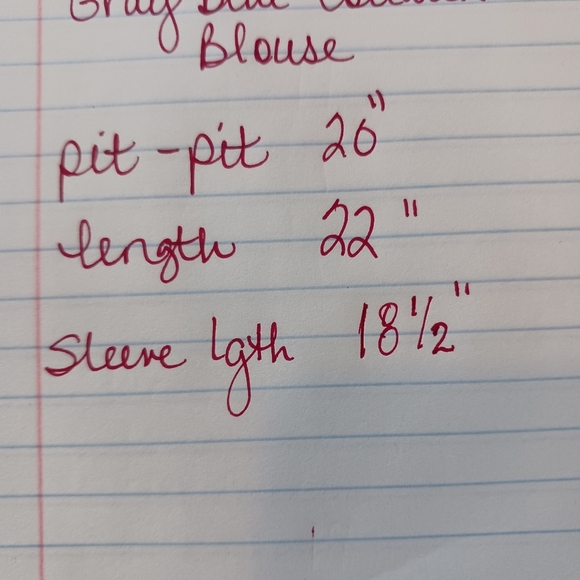 Gray Blue
Blouse
pit-pit 20"
length 22"
Sleeve lgth 18 1/2"